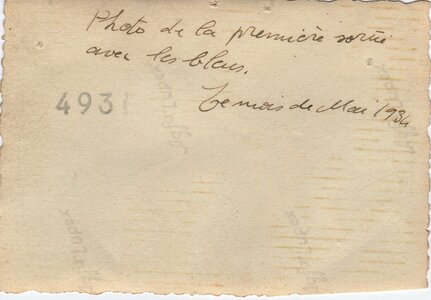 Photo de la première sortie
avec les bleus.
493
Le mois de Mai 1934